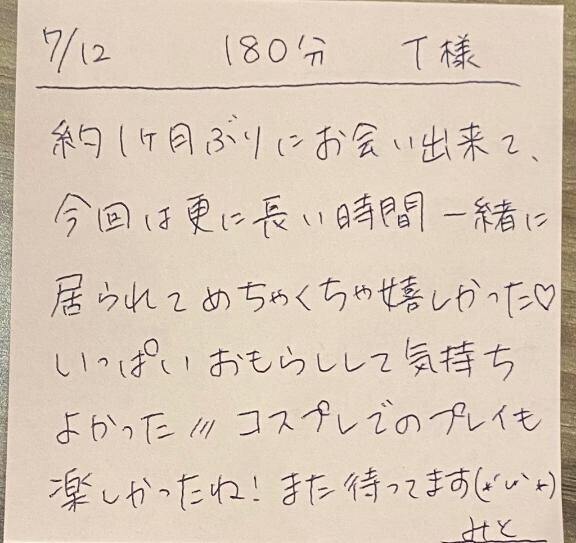 7/12 180分 T様
約1ケ月ぶりにお会い出来て、
今回は更に長い時間一緒に
居られてめちゃくちゃ嬉しかった♡
いっぱいおもらしして気持ち
よかった〃コスプレでのプレイも
楽しかったね!また待ってます(*ˊᵕˋ*)
みと